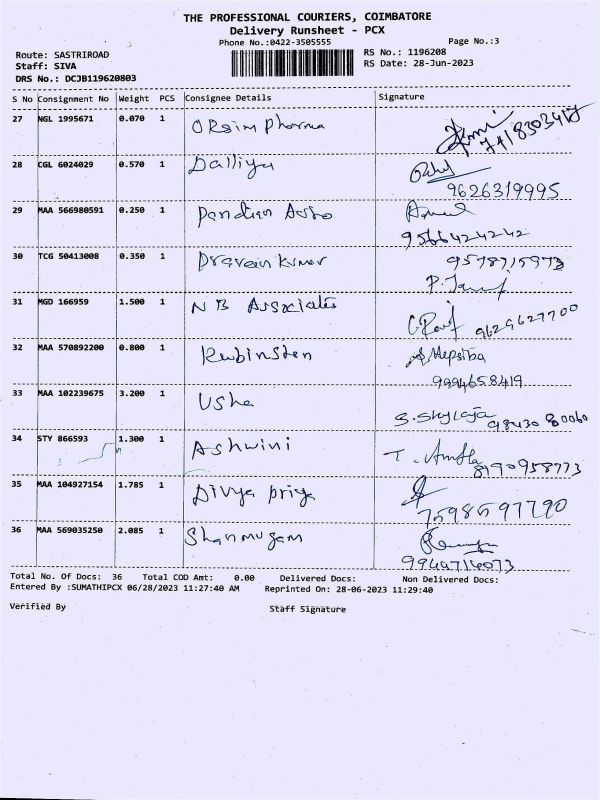 THE PROFESSIONAL COURIERS, COIMBATORE
Delivery Runsheet - PCX
Phone No.:0422-3505555
Page No.:3
Route: SASTRIROAD
RS No.: 1196208
Staff: SIVA
RS Date: 28-Jun-2023
DRS No.: DCJB119620803
S No Consignment No Weight PCS Consignee Details Signature
27 NGL 1995671 0.070 1 Orsim Pharma
28 CGL 6024029 0.570 1 Dalliya
9626319995
29 MAA 566980591 0.250 1 Pandian Auto
9566424242
30 TCG 50413008 0.350 1 Praveen Kumar
31 MGD 166959 1.500 1 N B Associates
9629627700
32 MAA 570892200 0.800 1 Rubinsten Hepsiba
9994658419
33 MAA 102239675 3.200 1 Usha
S. Skylaja 98430 80060
34 STY 866593 1.300 1 Ashwini
8190958773
35 MAA 104927154 1.785 1 Divya priya
7598597790
36 MAA 569035250 2.085 1 Shanmugam
Total No. Of Docs: 36 Total COD Amt: 0.00 Delivered Docs: Non Delivered Docs:
Entered By :SUMATHIPCX 06/28/2023 11:27:40 AM Reprinted On: 28-06-2023 11:29:40
Verified By Staff Signature